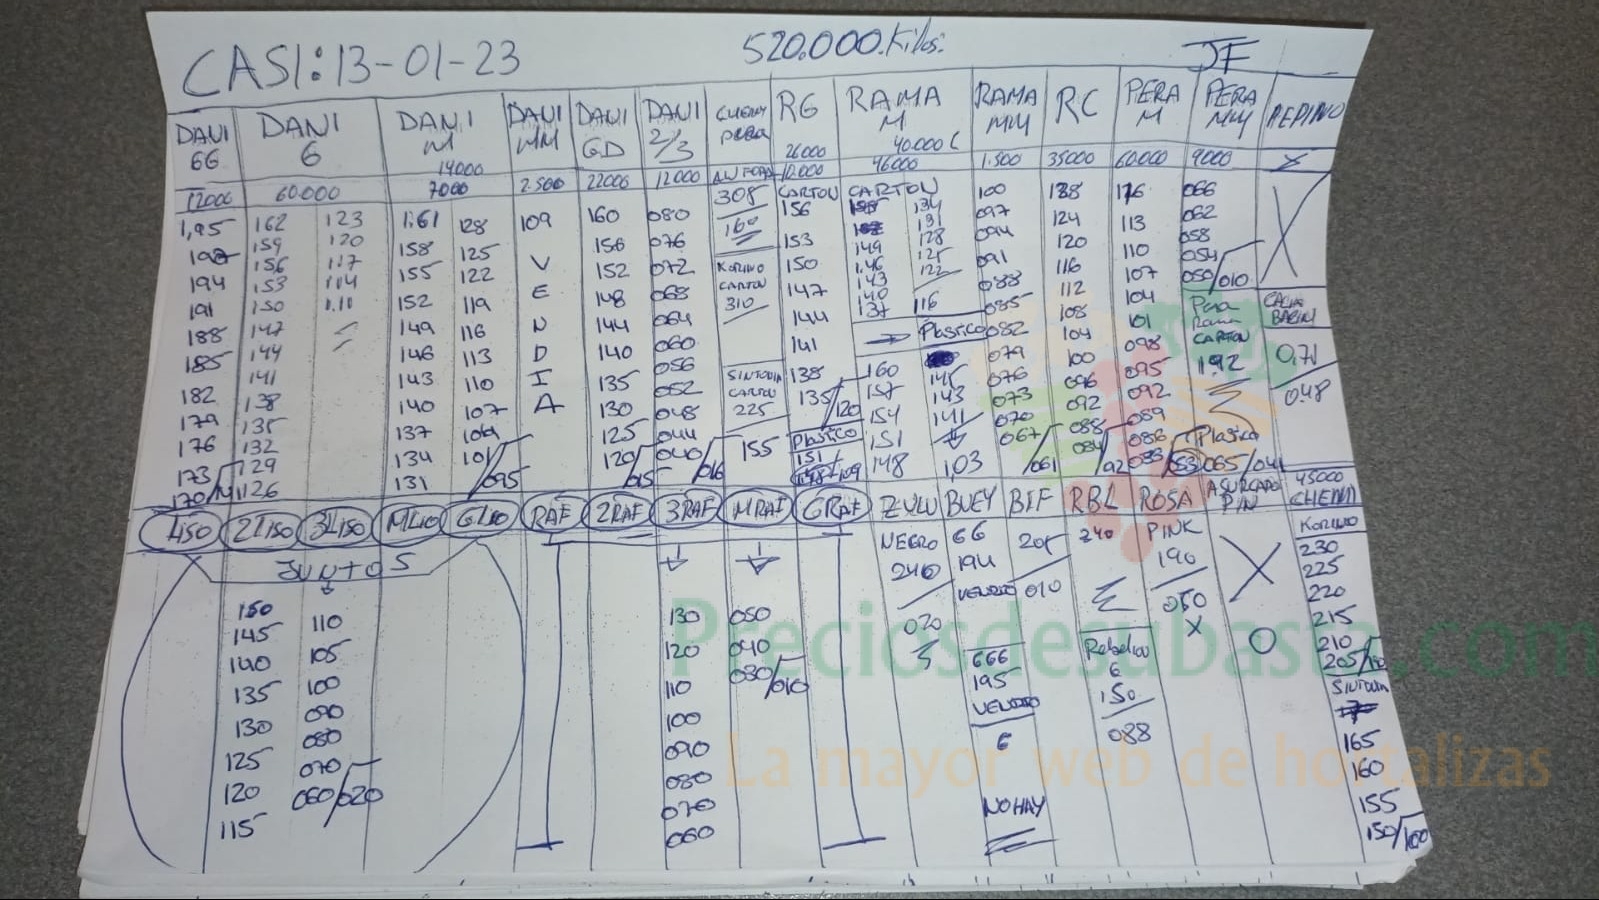 CASI: 13-01-23
520.000.Kilos.
JF
DANI GG
12000
1,95
194
191
188
185
182
179
176
173
DANI G
60.000
162
159
156
153
150
147
144
141
138
135
132
129
126
123
120
117
114
1.10
DANI M
14000
7000
1.61
158
155
152
149
146
143
140
137
134
131
128
125
122
119
116
113
110
107
104
101/095
DANI MM
2.500
109
V
E
N
D
I
A
DANI GD
22000
160
156
152
148
144
140
135
130
125
120/
DANI 2/3
12000
080
076
072
068
064
060
056
052
048
044
040/016
CHERRY PERA
308
160
KORINO
CARTON
310
SINTONIA
CARTON
225
155
RG
26000
10.000
CARTON
156
153
150
147
144
141
138
135/120
Plastico
151
RAMA M
40.000 C
46000
CARTON
149
1.46
143
140
137
134
131
128
125
122
116
Plastico
160
157
154
151
148
145
143
141
103
RAMA MM
1.500
100
097
094
091
088
085
082
079
076
073
070
067/061
RC
35000
128
124
120
116
112
108
104
100
096
092
088
084/92
PERA M
60.000
116
113
110
107
104
101
098
095
092
089
086
083/053
PERA MM
9000
066
062
058
054
050/010
Pera
Rama
CARTON
1.92
Plastico
065/041
PEPINO
X
CALABACIN
0.71
048
LISO
2LISO
3LISO
MLISO
GLISO
JUNTOS
150
145
140
135
130
125
120
115
110
105
100
090
080
070
060/020
RAF
2RAF
3RAF
130
120
110
100
090
080
070
060
MRAF
050
040
030/010
GRAF
ZULU
NEGRO
240
020
BUEY
GG
194
VENDIO
GGG
195
VENDIO
G
NO HAY
BIF
205
010
RBL
240
Rebelion
G
150
088
ROSA
PINK
190
050
X
ASURCADO
PIN
X
O
45000
CHERRY
KORINO
230
225
220
215
210
205/
SINTONIA
165
160
155
150/100
Preciosdesubasta.com
La mayor web de hortalizas